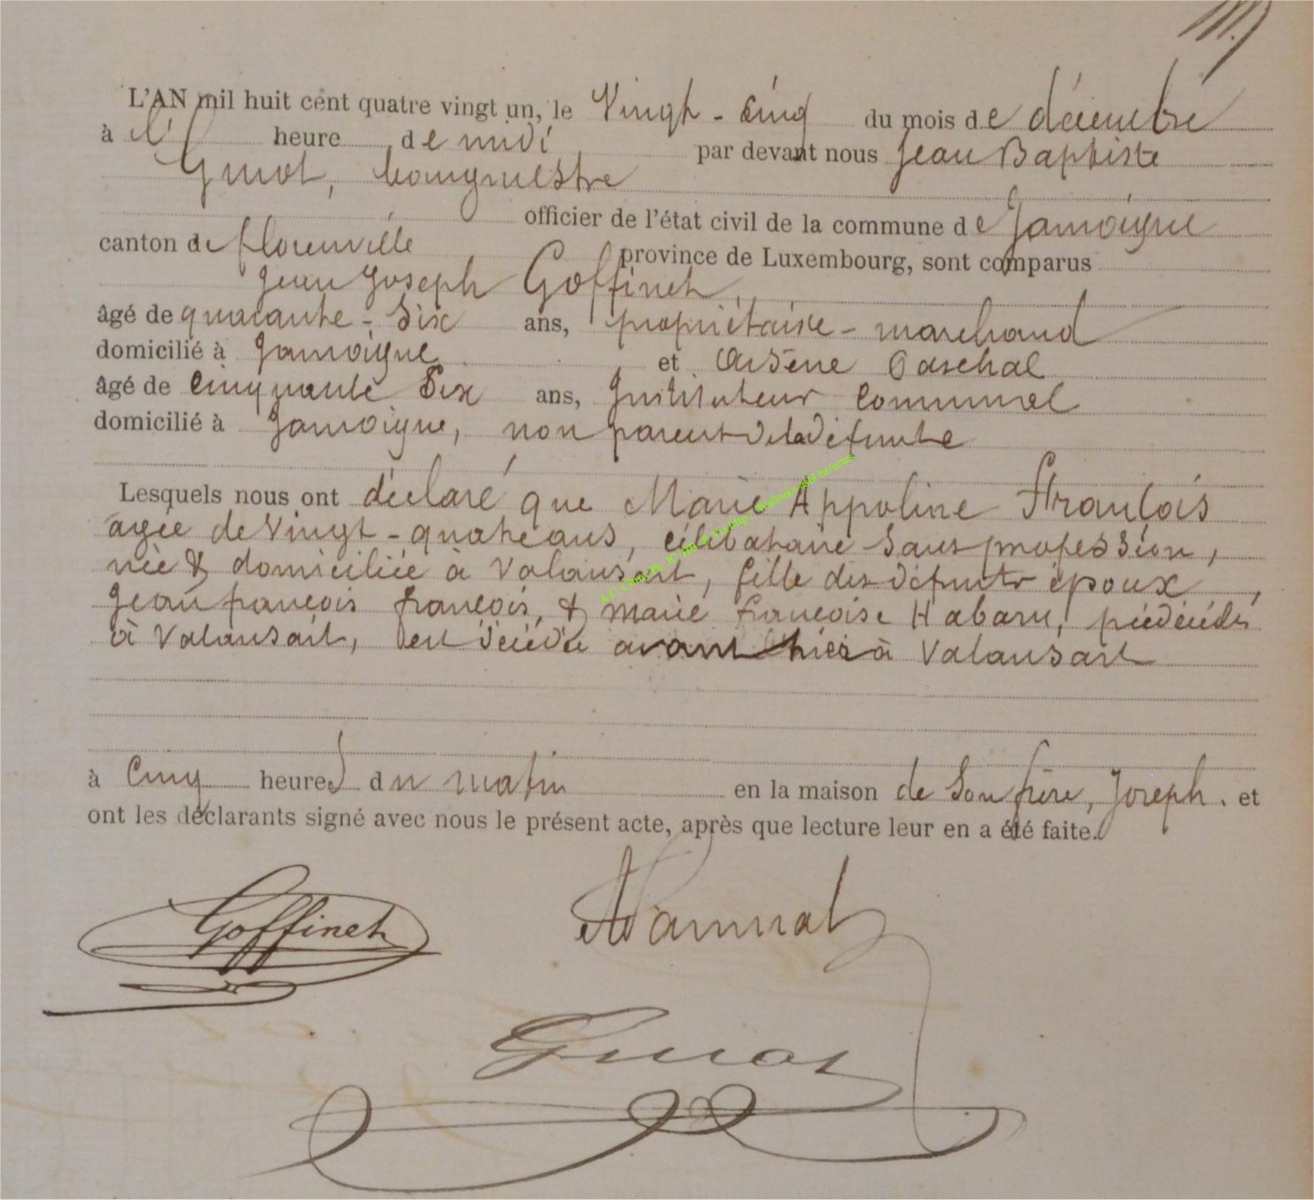 L'AN mil huit cent quatre vingt un, le Vingt-cinq du mois de décembre
à l' heure de midi par devant nous Jean Baptiste
bourgmestre
officier de l'état civil de la commune de Jamoigne
canton de florenville province de Luxembourg, sont comparus
Jean Joseph Goffinet
âgé de quarante-Six ans, propriétaire-marchand
domicilié à Jamoigne et Arsène Paschal
âgé de Cinquante Six ans, Instituteur Communal
domicilié à Jamoigne, non parent de la défunte
Lesquels nous ont déclaré que Marie Appoline François
agée de Vingt-quatre ans, célibataire Sans profession,
née & domiciliée à Valansart, fille des défunts époux
Jean françois françois, & Marie françoise Habaru, prédécédés
à Valansart, est décédée avant hier à Valansart
à Cinq heures du matin en la maison de Son frère, Joseph. et
ont les déclarants signé avec nous le présent acte, après que lecture leur en a été faite.
Goffinet